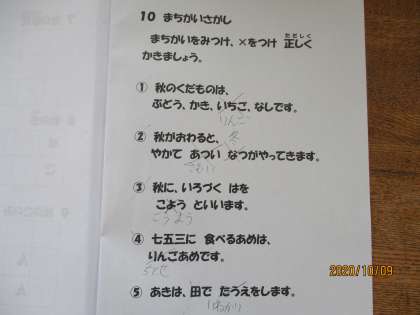 10 まちがいさがし
まちがいをみつけ、×をつけ 正しく
ただしく
かきましょう。
① 秋のくだものは、
ぶどう、かき、いちご、なしです。
りんご
② 秋がおわると、 冬
やがて あつい なつがやってきます。
さむい
③ 秋に、いろづく はを
こよう といいます。
こうよう
④ 七五三に 食べるあめは、
りんごあめです。
ちとせ
⑤ あきは、田で たうえをします。
いねかり
2020/10/09